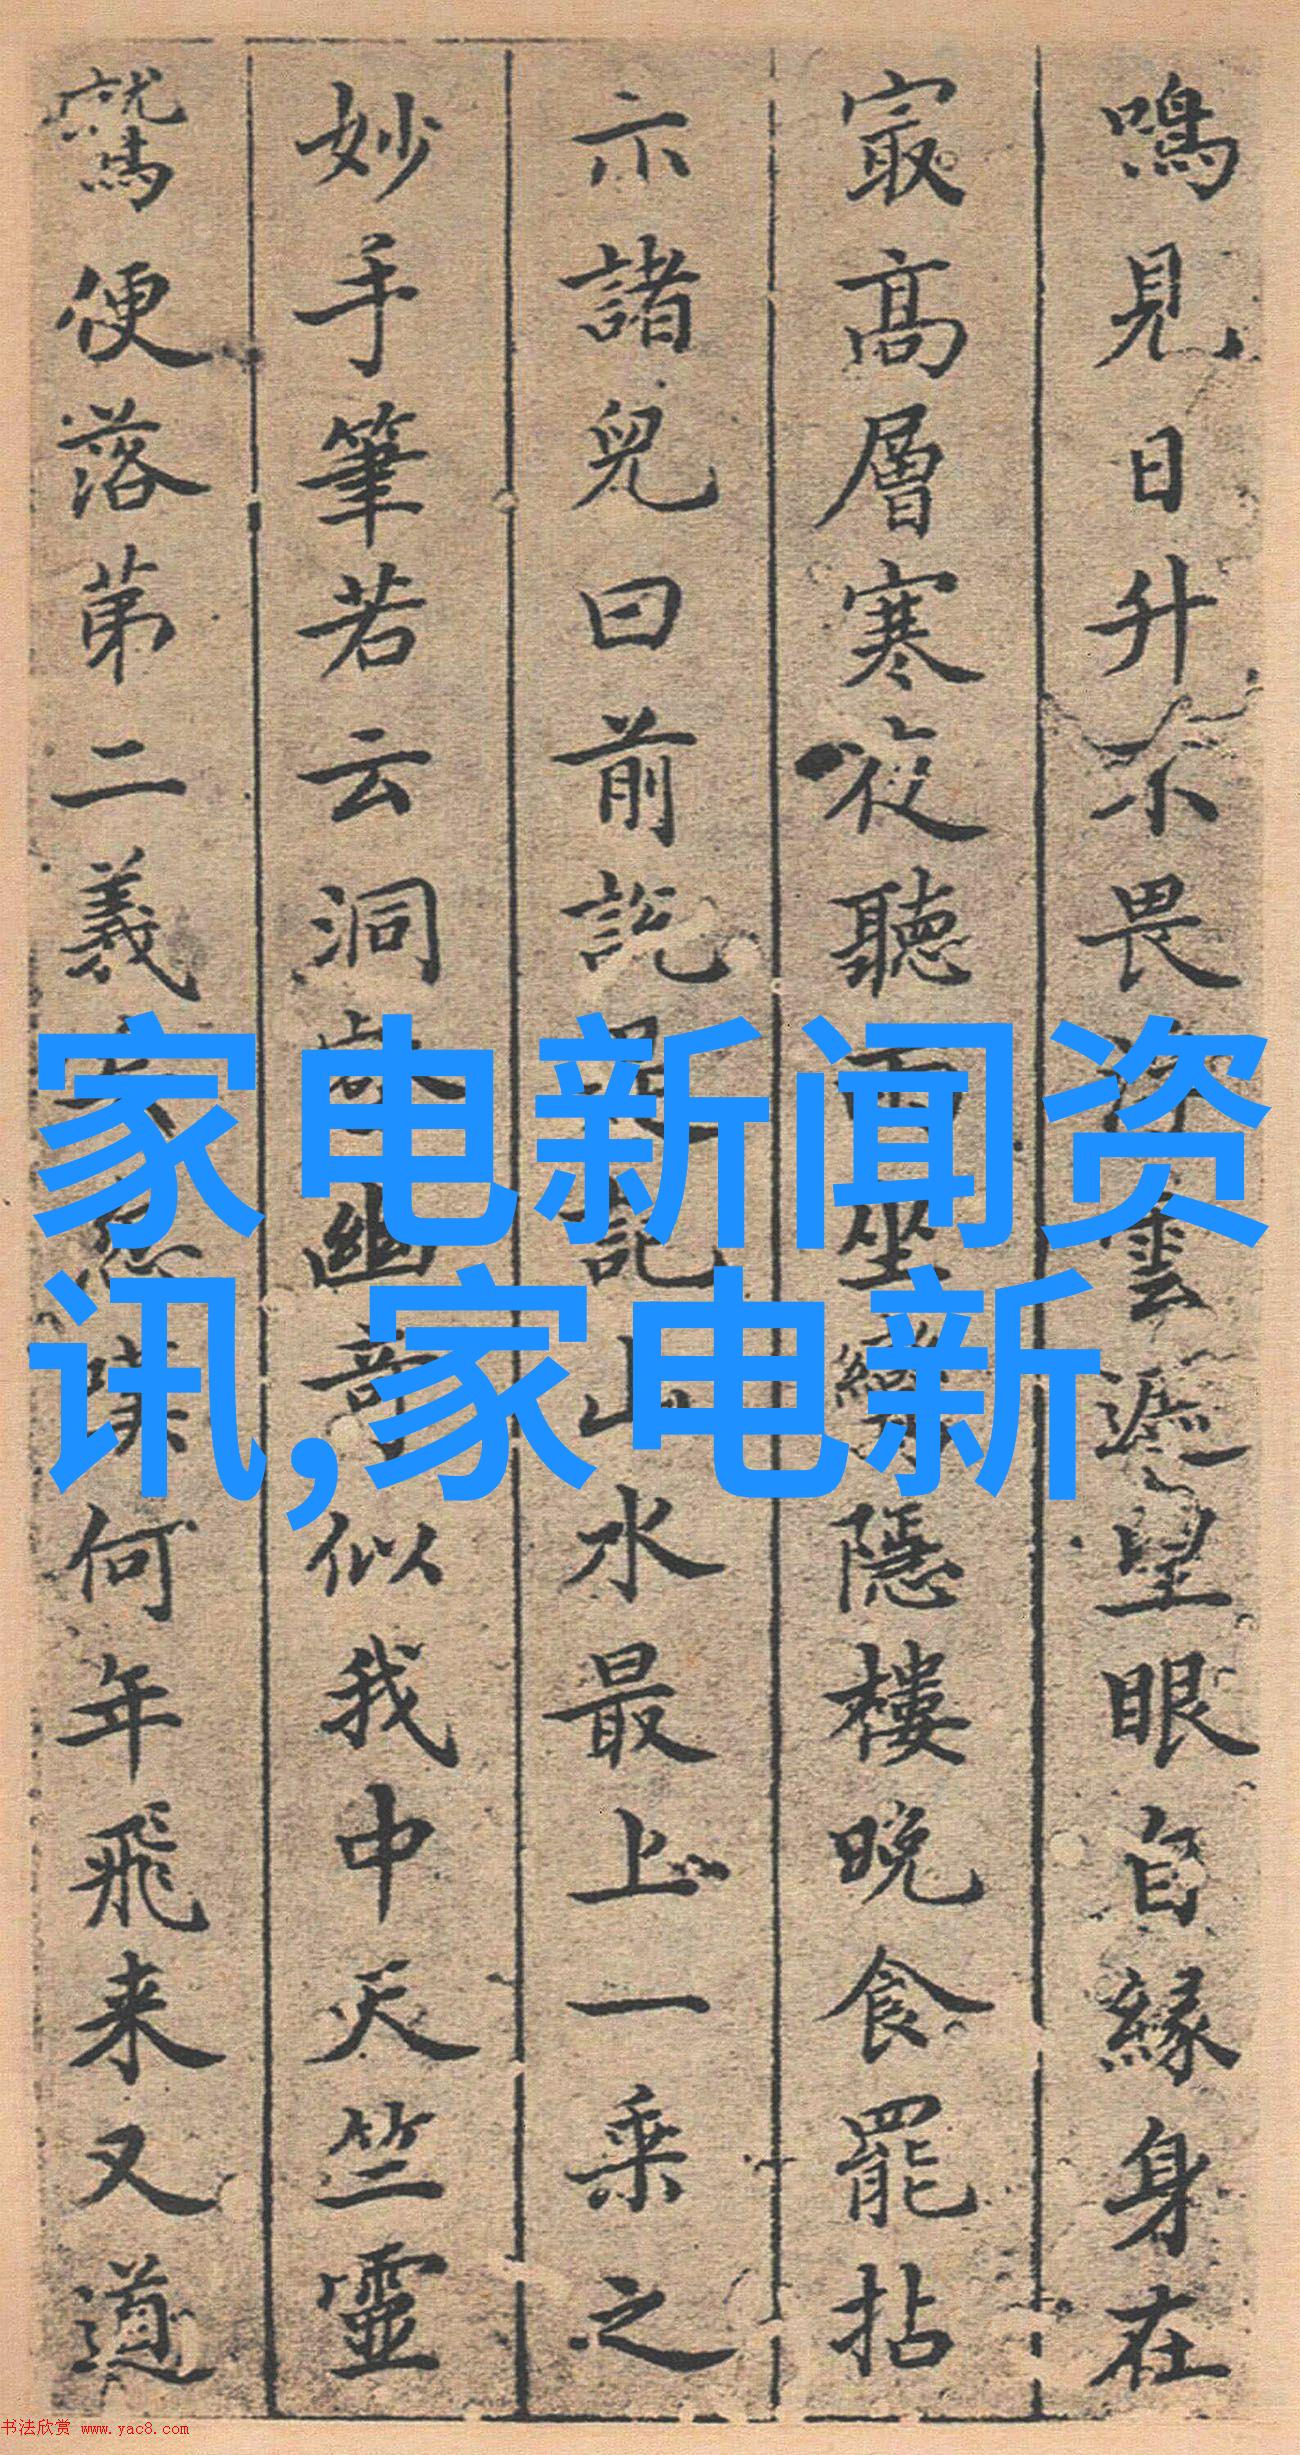 鳴見日升不畏浮雲遮望眼自緣身在
㝡高層寒夜聽雨坐隱樓晚食罷拈
示諸兒曰前說記山水最上一乘之
妙手筆若云洞幽奇似我中天竺靈
鷲便落第二義嘆何年飛来又道
家电新闻资
讯,家电新
书法欣赏 www.yac8.com